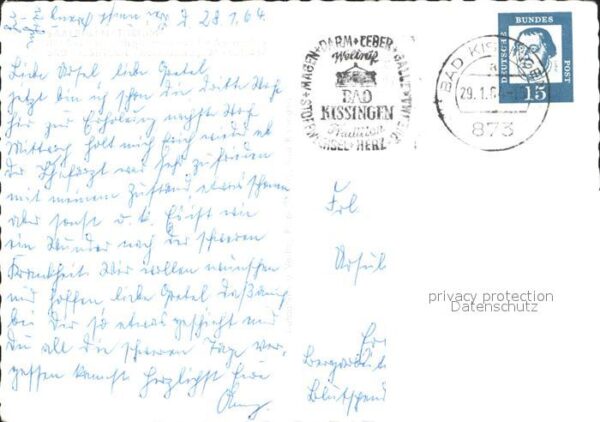 28.1.64.
Liebe Ursel, liebe Gretel
jetzt bin ich schon die dritte Woche
hier zur Erholung nächste Woche
Mittwoch holt mich Erich wieder ab
der Chefarzt war sehr zufrieden
mit meinem Zustand etwas schonen
aber sonst o.k. Es ist wie
ein Wunder nach der schweren
Krankheit. Wir wollen wünschen
und hoffen liebe Gretel daß auch
bei Dir so etwas geschieht und
Du all die schweren Tage ver-
gessen kannst herzlichst Eure
MAGEN + DARM + LEBER + GALLE
STOFFWECHSEL + HERZ
Weltruf
BAD
KISSINGEN
Tradition
BAD KISSINGEN
29.1.64
873
DEUTSCHE BUNDESPOST
15
Frl.
Ursul
privacy protection
Datenschutz